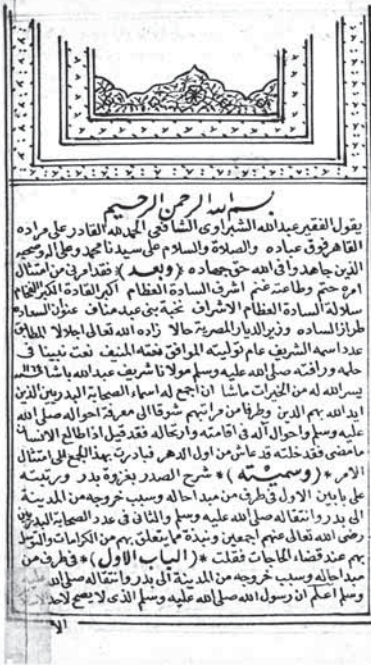 بسم الله الرحمن الرحيم
يقول الفقير عبد الله الشبراوى الشافعى الحمد لله القادر على مراده
القاهر فوق عباده والصلاة والسلام على سيدنا محمد وعلى اله وصحبه
الذين جاهدوا فى الله حق جهاده (وبعد) فقد امرنى من امتثال
امره حتم وطاعته غنم اشرف السادة العظام اكبر القادة الكبراء الفخام
سلالة السادة العظام الاشراف نخبة بنى عبد مناف عنوان السعاده
طراز الساده وزير الديار المصرية حالا زاده الله تعالى اجلالا المطابق
عدد اسمه الشريف عام توليته الموافق نعته المنيف نعت نبينا فى
حلمه ورافته صلى الله عليه وسلم مولانا شريف عبد الله باشا
يسر الله له من الخيرات ماشا ان اجمع له اسماء الصحابة البدريين الذين
ايد الله بهم الدين وطرفا من مراتبهم شوقا الى معرفة احواله صلى الله
عليه وسلم واحوال آله فى اقامته وارتحاله فقد قيل اذا طالع الانسان
ما مضى فقد خلته قد عاش من اول الدهر فبادرت بهذا الجمع الى امتثال
الامر *(وسميته)* شرح الصدر بغزوة بدر ورتبته
على بابين الاول فى طرف من مبدا حاله وسبب خروجه من المدينة
الى بدر وانتقاله صلى الله عليه وسلم والثانى فى عدد الصحابة البدريين
رضى الله تعالى عنهم اجمعين ونبذة مما يتعلق بهم من الكرامات والتوسل
بهم عند قضاء الحاجات فقلت *(الباب الاول)* فى طرف من
مبدا حاله وسبب خروجه من المدينة الى بدر وانتقاله صلى الله عليه
وسلم اعلم ان رسول الله صلى الله عليه وسلم الذى لا يصح لاحد